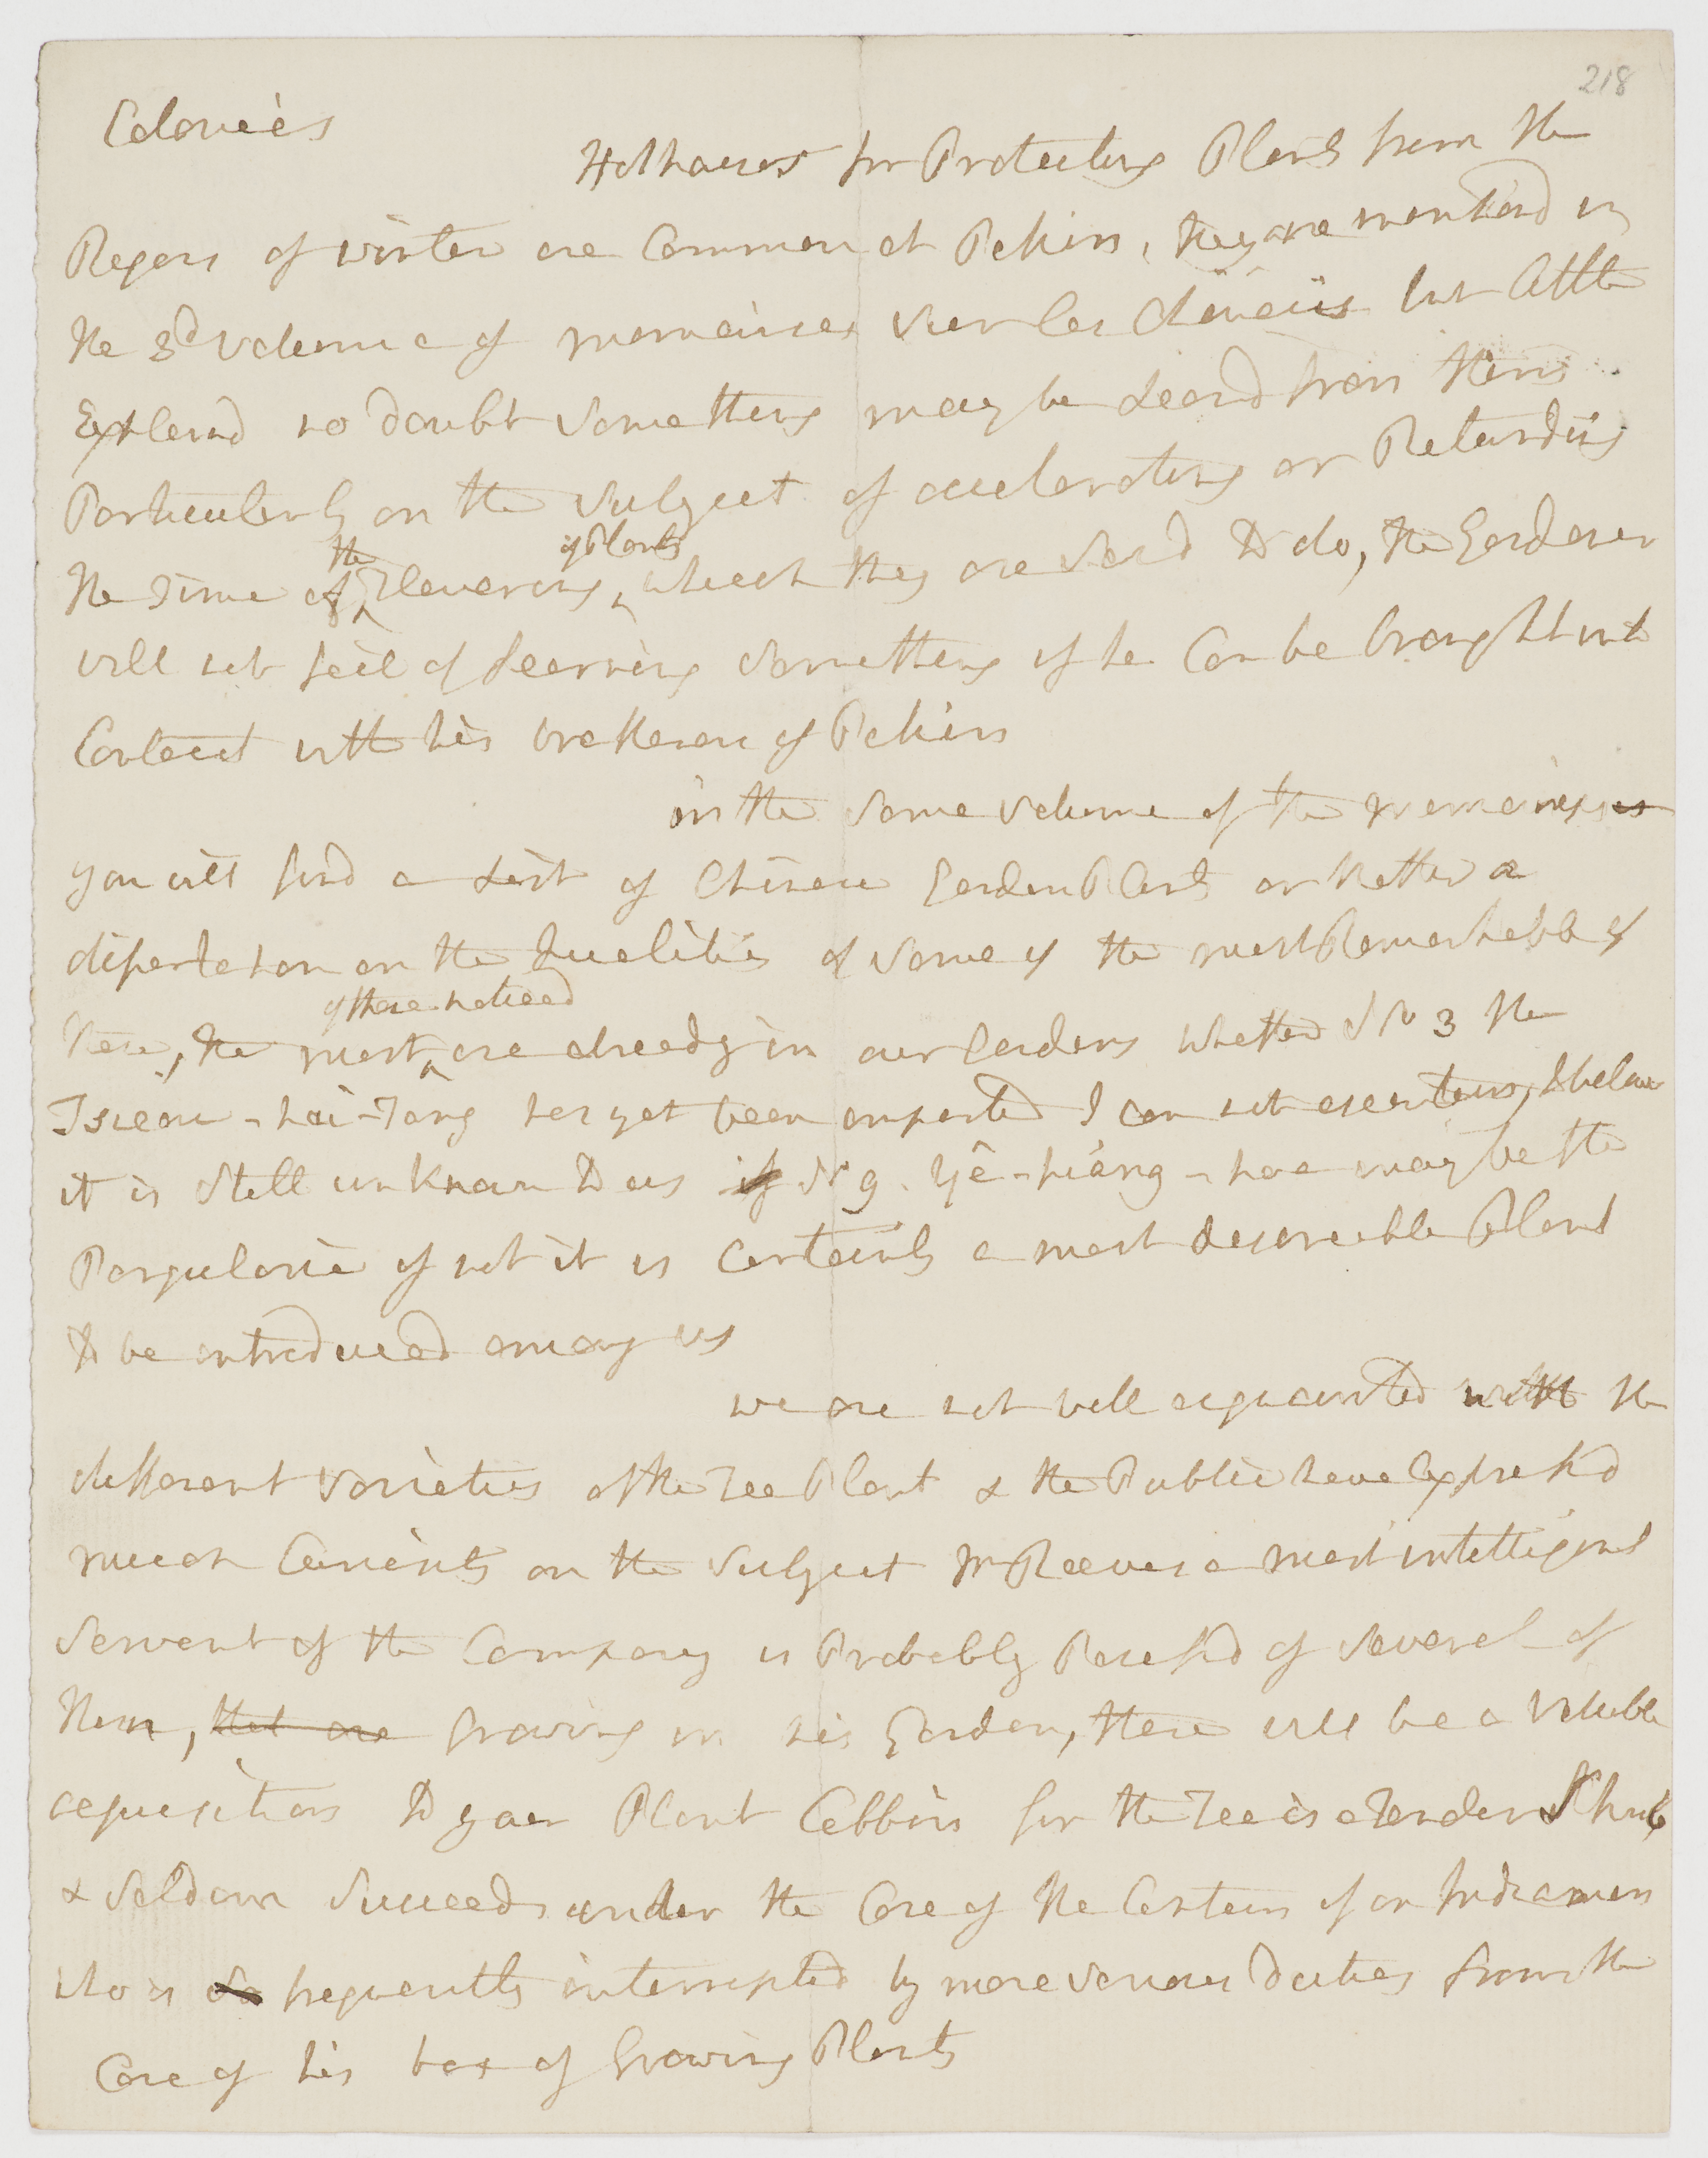 218
Colonies
Hothouses for Protecting Plants from the
Rigors of winter are Common at Pekin, they are mentiond in
the 3d volume of memoires sur les Chinois but little
Explaind no doubt something may be Learnd from them
Particularly on the subject of accelerating or Retarding
the Time of the Flowering of Plants which they are said to do, the Gardener
will not fail of Learning something if he Can be brought into
Contact with his bretheren of Pekin
in the same volume of the memoires
you will find a List of Chinese Garden Plants or Rather a
dissertation on the Qualities of some of the most Remarkable of
them, the most of those noticed are already in our Gardens whether No 3 the
Tsieou-hai-Tang has yet been imported I can not ascertain, I beleive
it is still unknown to us if No 9. Yê-hiang-hoa may be the
Pergularia if not it is Certainly a most desireable Plant
to be introduced among us
we are not well acquainted with the
different varieties of the Tea Plant & the Public have Expressd
much Curiosity on the subject Mr Reeves a most intelligent
servant of the Company is Probably Possessd of several of
them, that are Growing in his Garden, these will be a Valuble
acquisition to your Plant Cabbin for the Tea is a Tender Shrub
& seldom succeeds under the Care of the Captain of an Indiaman
who is so frequently interrupted by more serious duties from the
Care of his box of Growing Plants